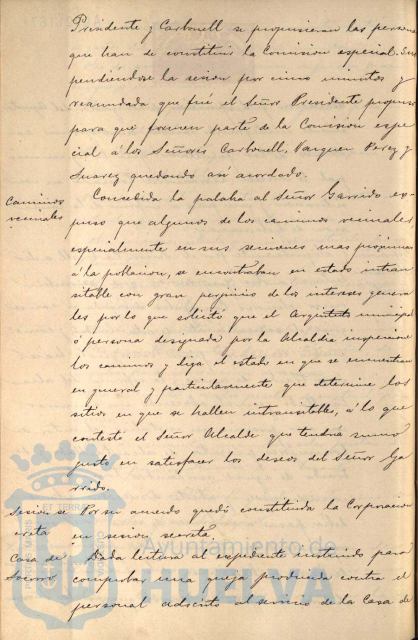 Presidente y Carbonell se propusieran las personas
que han de constituir la Comision especial. Sus
pendiéndose la sesion por cinco minutos y
reanudada que fué el Señor Presidente propuso
para que formen parte de la Comision espe
cial á los Señores Carbonell, Vazquez Perez y
Suarez quedando asi acordado.
Caminos
vecinales
Concedida la palabra al Señor Garrido ex-
puso que algunos de los caminos vecinales
especialmente en sus secciones mas próximas
á la poblacion, se encontraban en estado intran
sitable con gran perjuicio de los intereses genera
les por lo que solicitó que el Arquitecto municipal
ó persona designada por la Alcaldia inspeccione
los caminos y diga el estado en que se encuentran
en general y particularmente que determine los
sitios en que se hallen intransitable, á lo que
contestó el Señor Alcalde que tendria sumo
gusto en satisfacer los deseos del Señor Ga
rrido.
Sesion
creta
Por su acuerdo quedó constituida la Corporacion
en sesion secreta
Casa de
Socorro
Dada lectura al expediente instruido para
comprobar una queja producida contra el
personal adscrito al servicio de la Casa de
Ayuntamiento de
HUELVA